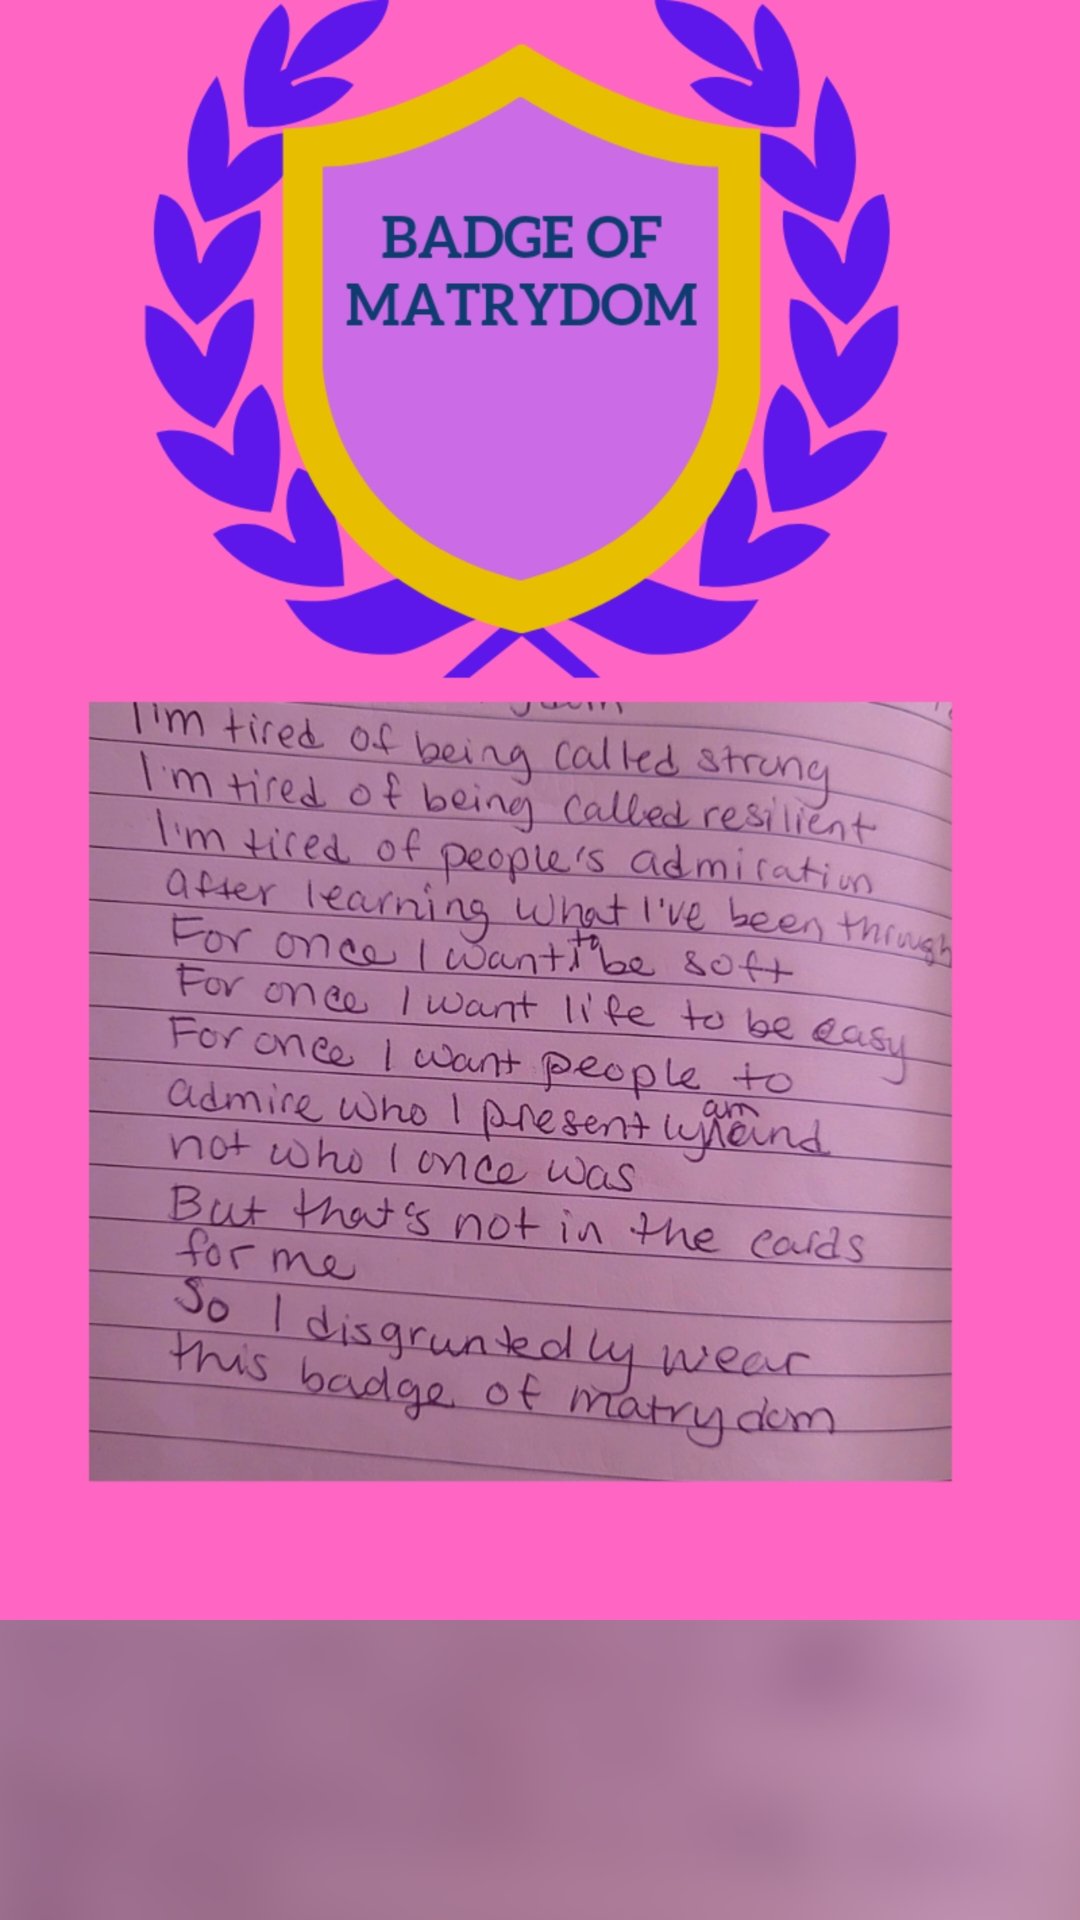 BADGE OF
MATRYDOM
I'm tired of being called strong
I'm tired of being called resilient
I'm tired of people's admiration
after learning what I've been through
For once I want to be soft
For once I want life to be easy
For once I want people to
admire who I presently am and
not who I once was
But that's not in the cards
for me
So I disgruntedly wear
this badge of matrydom